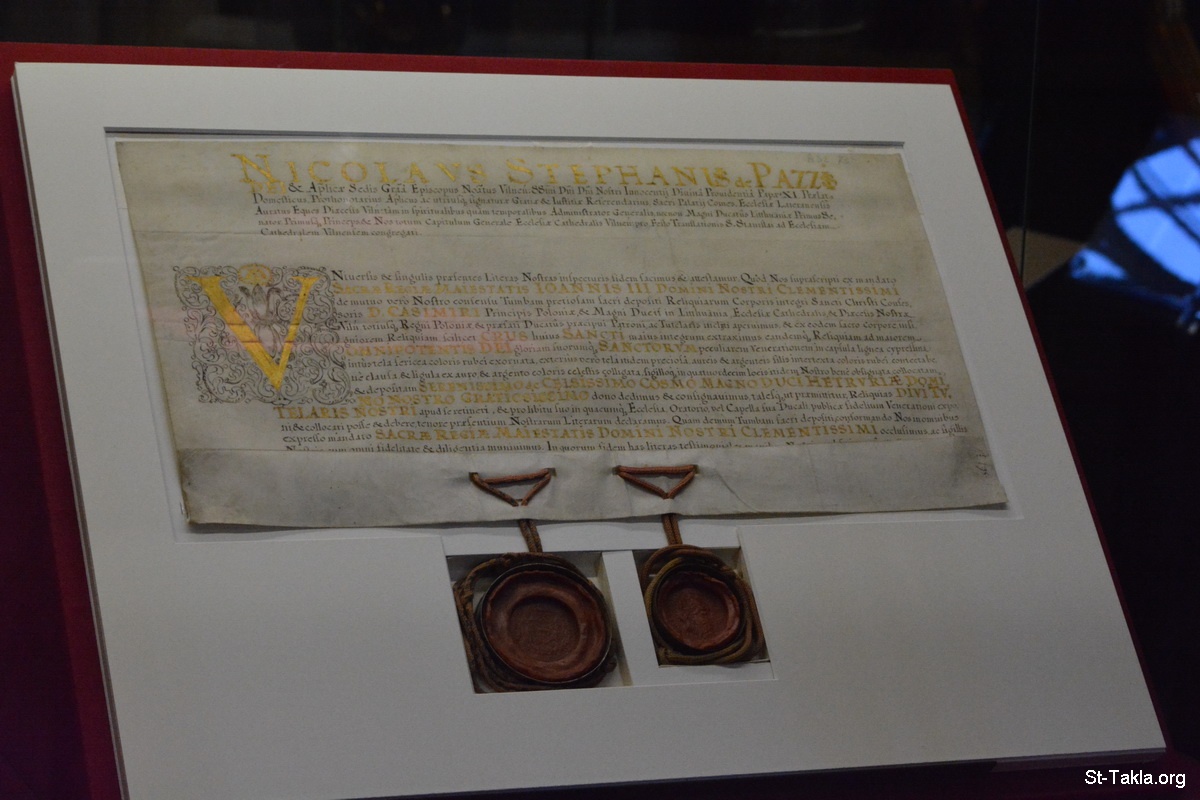 NICOLAVS STEPHANVS de PAZZ
DEI & Aplicæ Sedis Grãa Episcopus
Domesticus, Prothonotarius Aplicus ac utriusq, signaturæ Gratiæ & Iustitiæ Referendarius, Sacri Palatij Comes, Ecclesiæ Lateranensis
Auratus Eques Diæcesis Vilnen: tam in spiritualibus quàm temporalibus Administrator Generalis, necnon Magni Ducatus Lithuaniæ Primus Se-
nator Primasq, Princeps, & Nos totum Capitulum Generale Ecclesiæ Cathedralis Vilnen: pro Festo Translationis S. Stanislai ad Ecclesiam
Cathedralem Vilnensem congregati.
VNiversis & singulis præsentes Literas Nostras inspecturis fidem facimus & attestamur. Quòd Nos suprascripti ex mandato
SACRÆ REGIÆ MAIESTATIS IOANNIS III DOMINI NOSTRI CLEMENTISSIMI
de mutuo verò Nostro consensu Tumbam pretiosam sacri depositi Reliquiarum Corporis integri Sancti Christi Confes-
soris D. CASIMIRI Principis Poloniæ & Magni Ducis Lithuaniæ in Ecclesia Cathedrali & Diæcesis Nostræ
totiusq, Regni Poloniæ & præfati Ducatus præcipui Patroni, ac Tutelaris aperuimus, & ex eodem sacro corpore
Reliquiam, scilicet CRUS huius SANCTI maius integrum extraximus, eandemq, Reliquiam ad maiorem
OMNIPOTENTIS DEI gloriam suorumq, SANCTORVM peculiarem Venerationem in capsula lignea
intus tela sericea coloris rubei exornata, exterius verò tela itidem preciosa aureis & argenteis filis intertexta coloris rubei,
clausa & ligula ex auro & argento coloris cælestis colligata, sigilloq, in quatuordecim locis itidem Nostro benè obsignata
& depositam SERENISSIMO ac CELSISSIMO COSMO MAGNO DUCI HETRVRIÆ DOMI
NO NOSTRO GRATIOSISSIMO dono dedimus & consignavimus, talesq, ut præmittitur, Reliquias DIVI TV
TELARIS NOSTRI apud se retineri, & pro libitu suo in quacunq, Ecclesia, Oratorio, vel Capella sua Ducali publicæ fidelium Venerationi expo-
ni & collocari posse & debere, tenore præsentium Nostrarum Literarum declaramus. Quam demùm Tumbam sacri depositi, conformando Nos
expresso mandato SACRÆ REGIÆ MAIESTATIS DOMINI NOSTRI CLEMENTISSIMI occlusimus, ac sigillis
omni fidelitate & diligentia munivimus. In quorum fidem has literas
St-Takla.org